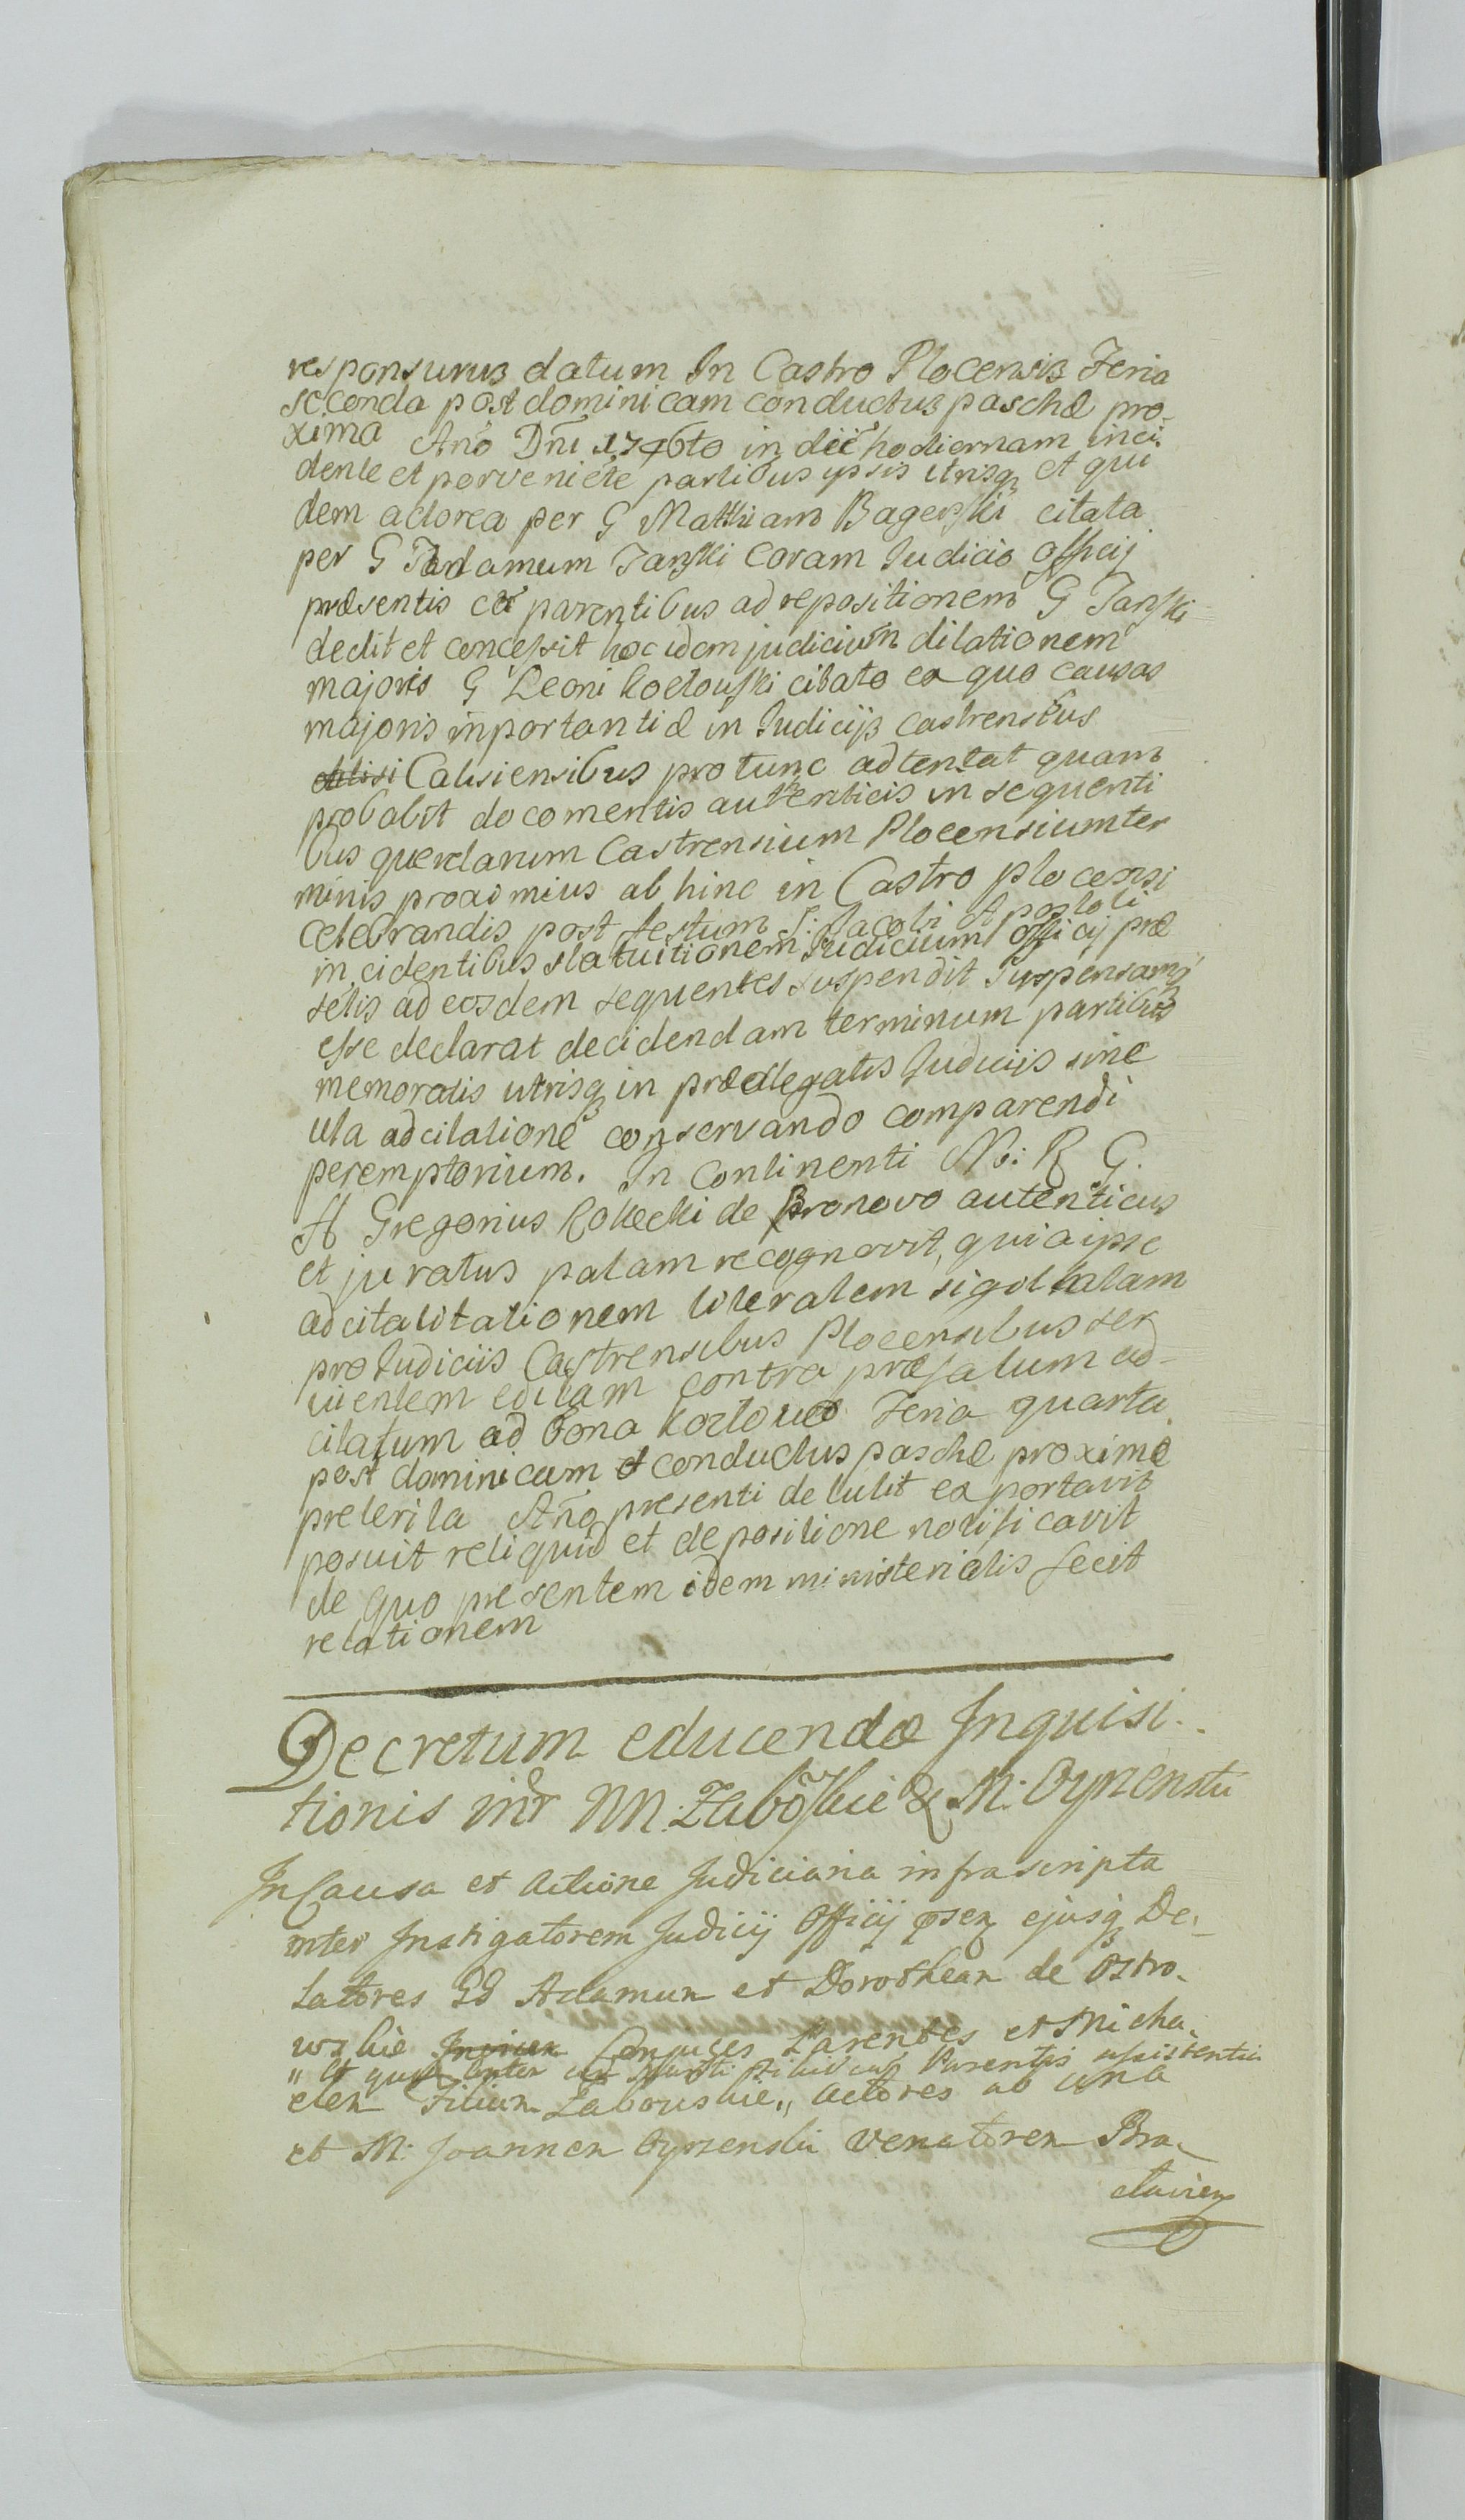 responsurus datum In Castro Plocensis Feria
secenda post dominicam conductus paschæ pro-
xima Año Dñi 1746to in dië hodiernam inci-
dente et perveniête partibus ipsis utrisq et qui
dem actorea per G Matthiam Bagenski citata
per G Adamum Janski Coram Iudicio officij
præsentis cõ parentibus ad repositionem G Janski
dedit et concessit hoc idem judicium dilationem
majoris G Leoni Kozlouski citato ex quo causas
majoris importantiæ in Iudicijs castrensibus
Calisiensibus protunc adtentat quam
probabit documentis authenticis in sequenti
bus querelarum Castrensium Plocensium ter
minis proximius ab hinc in Castro plocensi
celebrandis post festum S: Jacobi Apostoli
incidentibus statuitionem Iudicium officij præ
setis ad eosdem sequentes suspendit suspensamq
esse declarat decidendam terminum partibus
memoratis utrisq in præallegatis Iudiciis sine
ula adcitatione conservando comparendi
peremptorium. In Continenti M: R G.
A Gregorius Rokecki de Pronovo autenticus
et juratus palam recognovit, quia ipse
adcitalitationem literalem sigillatam
pro Iudiciis Castrensibus Plocensibus ser
vientem editam contra præfatum ad-
citatum ad bona Kozlowo Feria quarta
post dominicam et conductus paschæ proxime
preterita Año presenti detulit exportavit
posuit reliquid et de positione notificavit
de quo presentem idem ministerialis fecit
relationem
Decretum educendæ Inquisi-
tionis intr NN: Zaboskie & M: Oyrzenski
In Causa et Actione Judiciaria infrascripta
inter Instigatorem Judicij Officij psen ejusq De-
latores GG Adamum et Dorotheam de Ostro-
wskie Conjuges Parentes et Micha-
elem Filium Zabouskie „ actores ab una
et M: Joannem Oyrzenski Venatorem Bra-
clavien